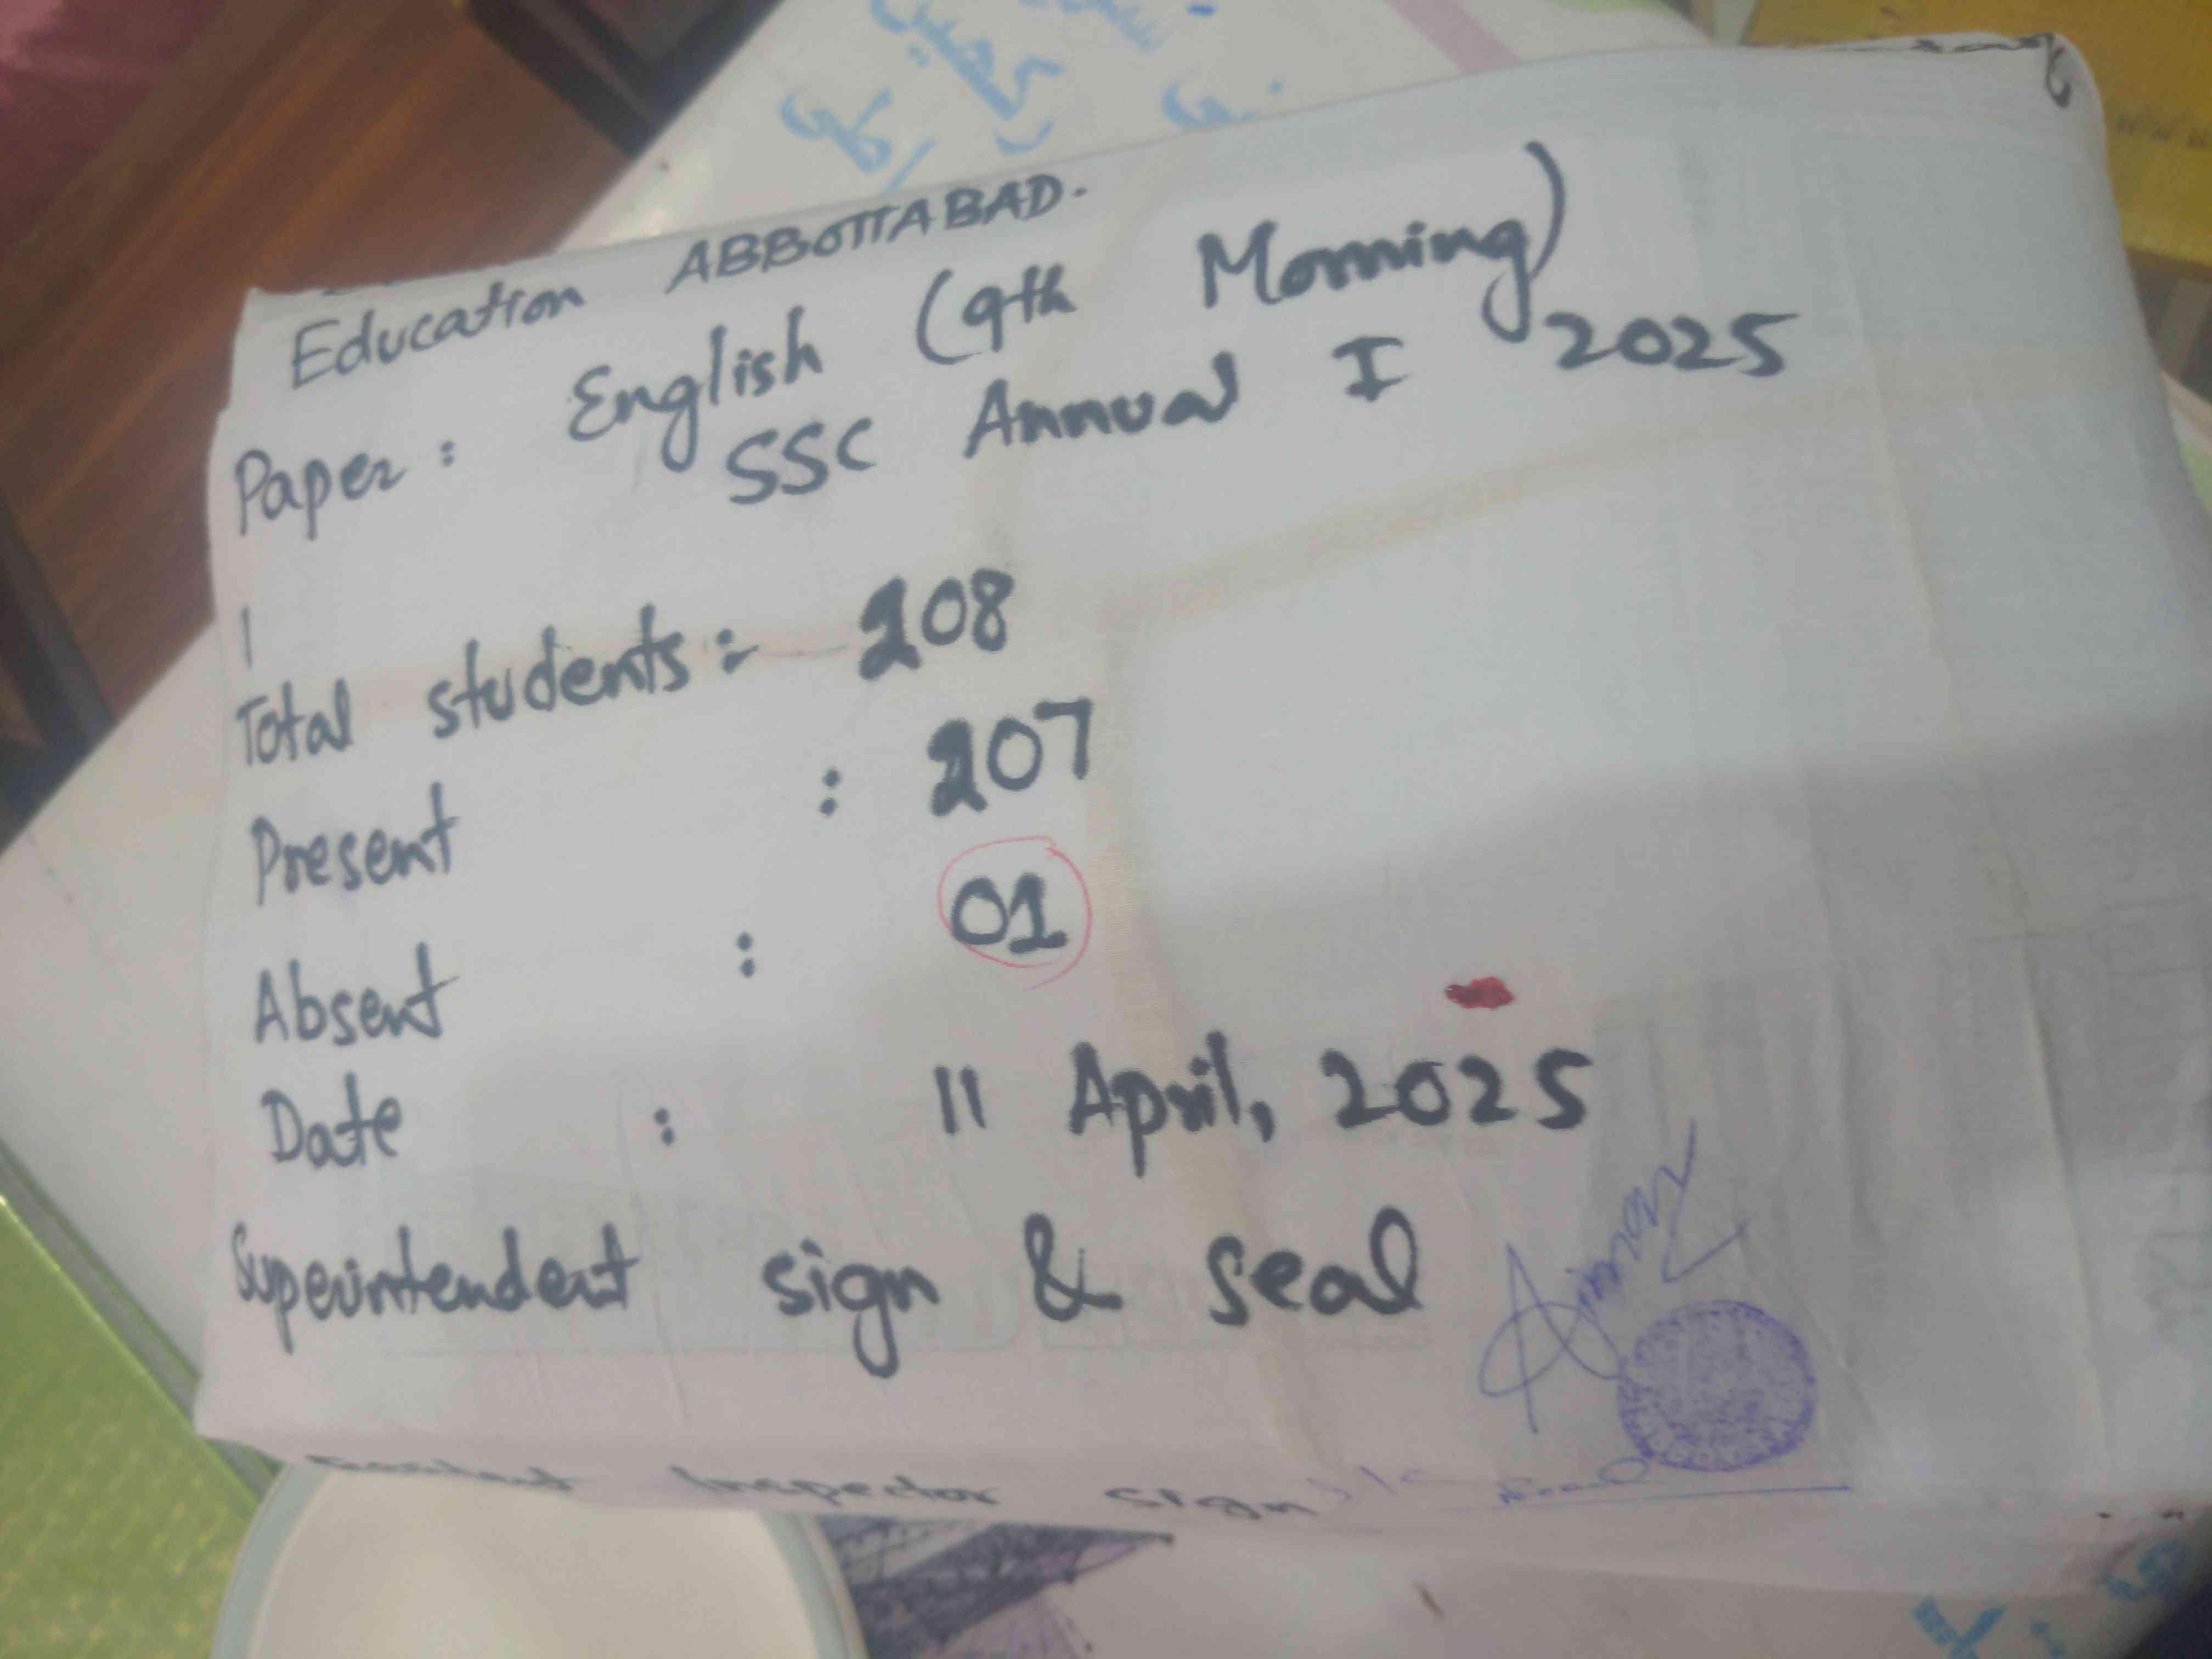 Education ABBOTTABAD.
Paper: English (9th Morning)
SSC Annual I 2025
Total students:- 208
Present : 207
Absent : 01
Date : 11 April, 2025
Superintendent sign & seal
Inspector sign